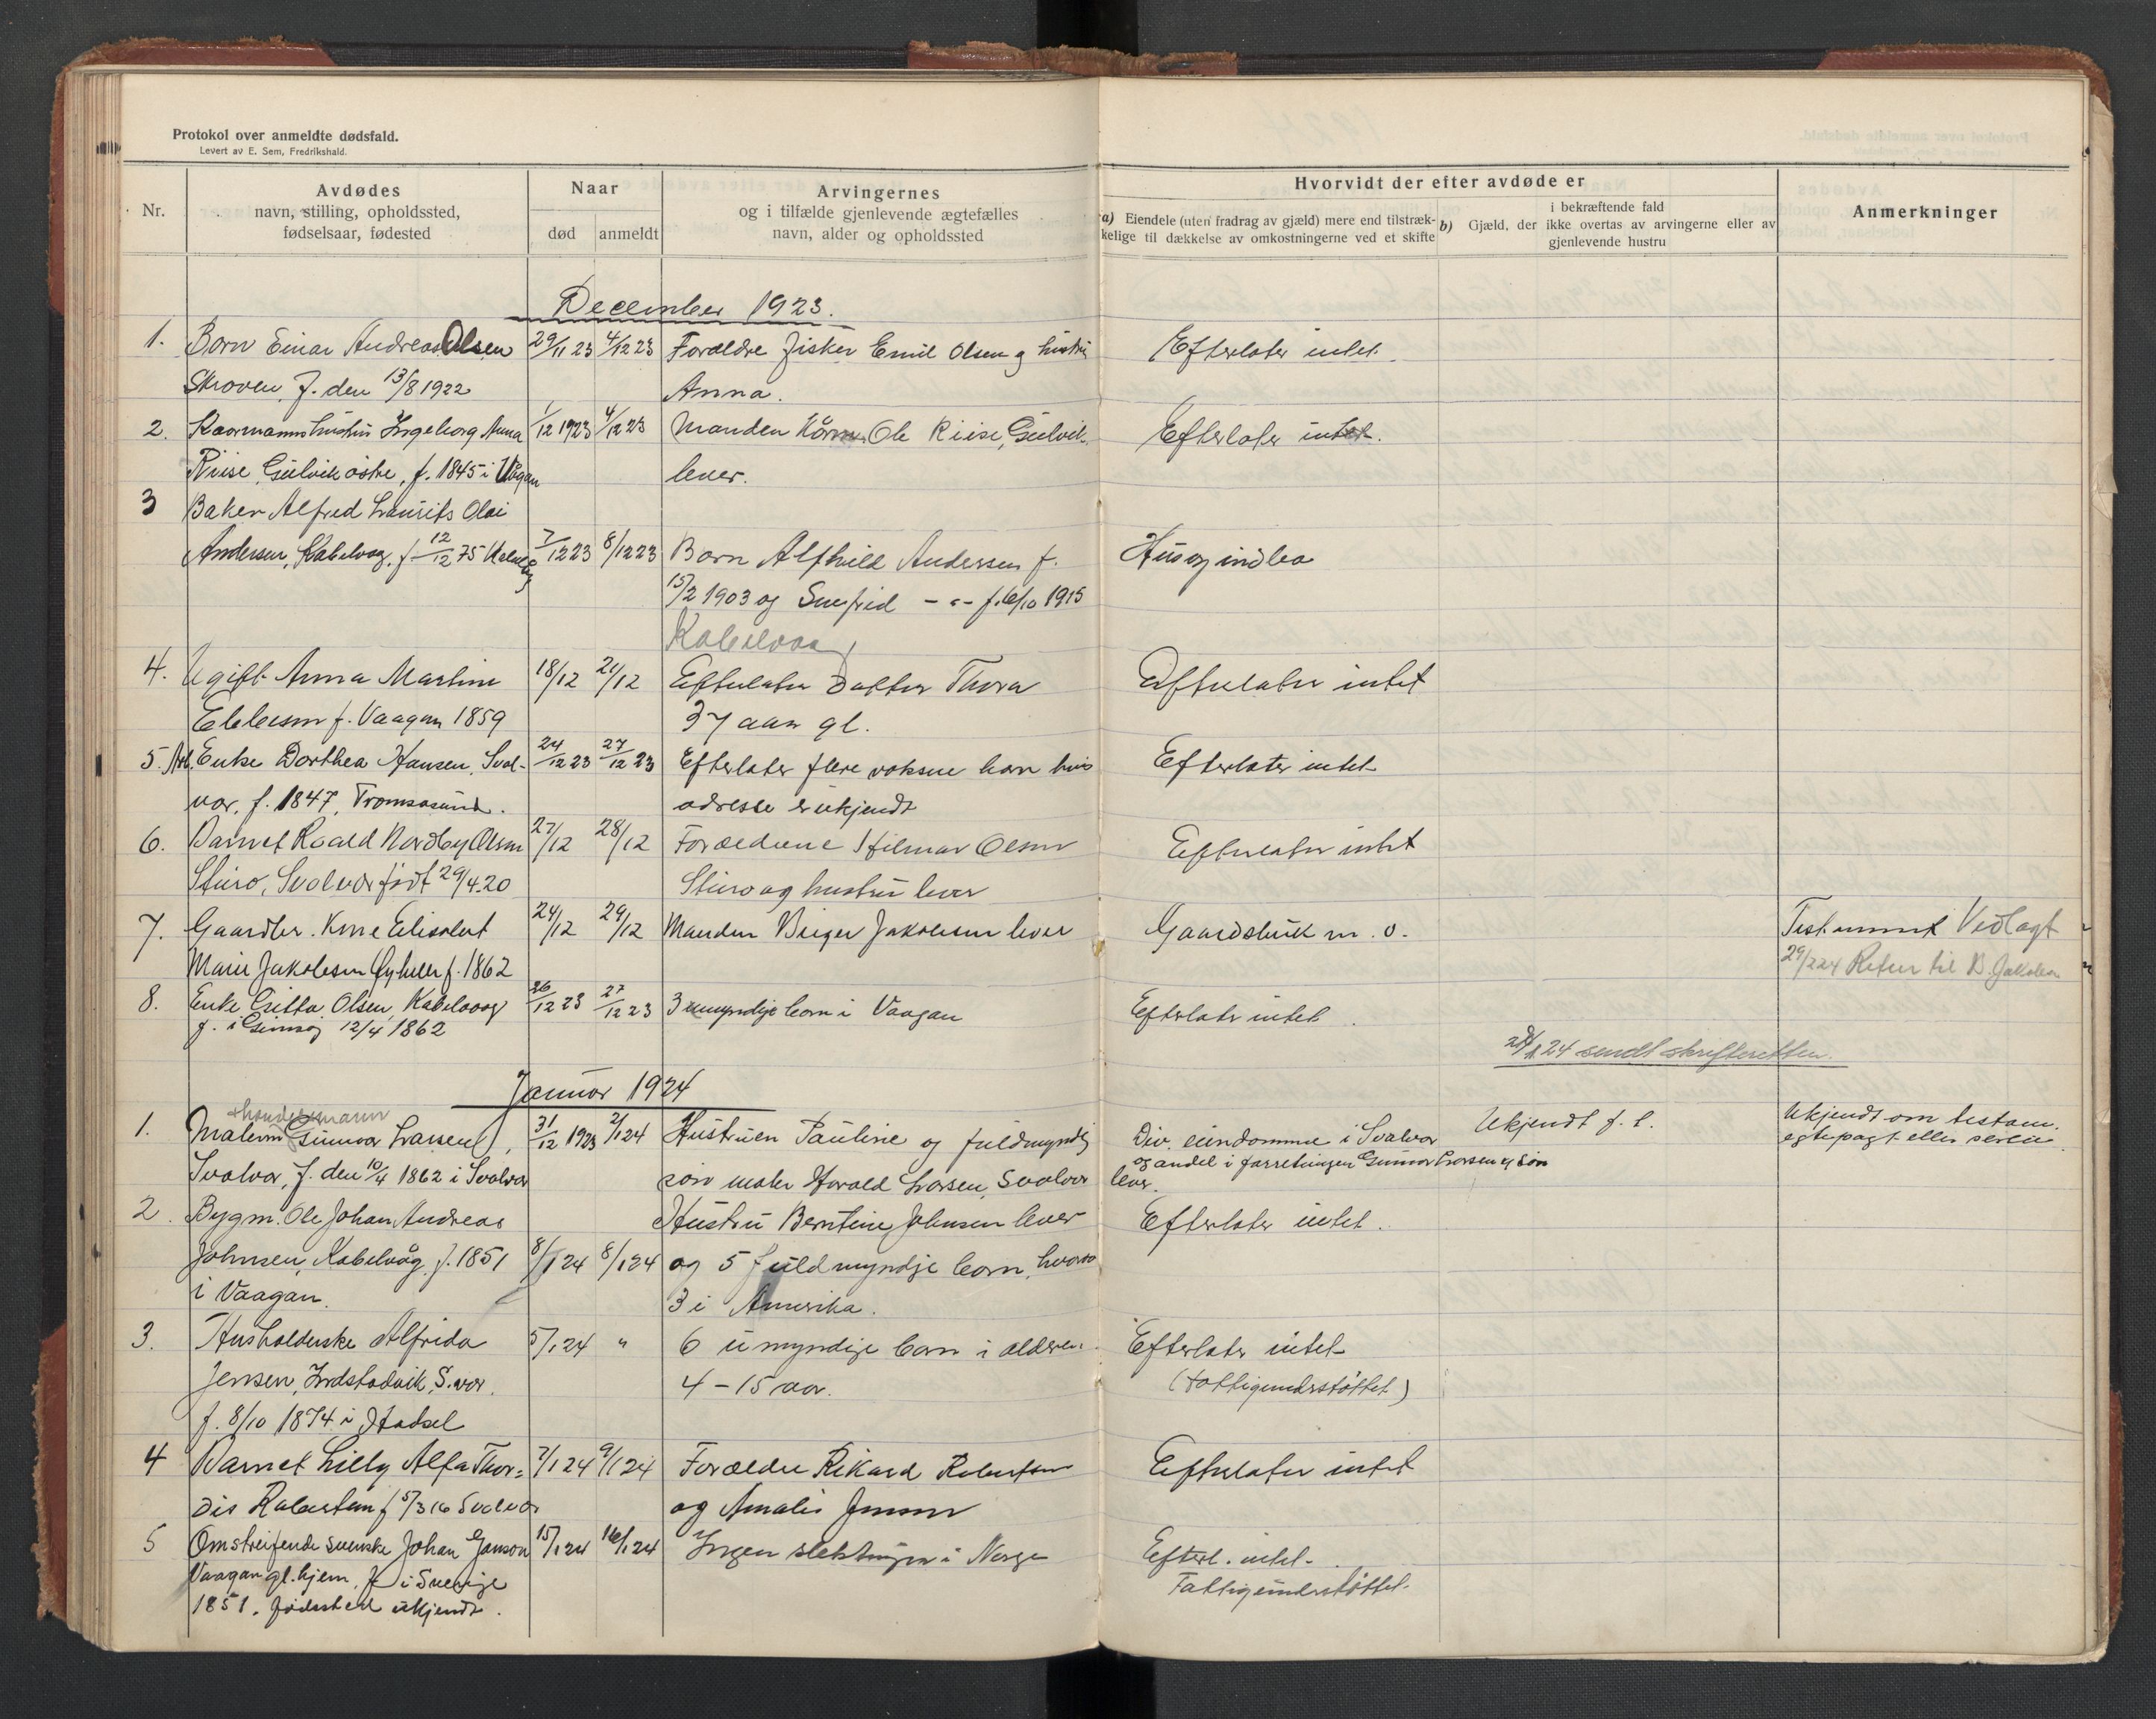 Protokol over anmeldte dødsfald.
Levert av E. Sem, Fredrikshald.
Nr.
Avdødes
navn, stilling, opholdssted,
fødselsaar, fødested
Naar
død
anmeldt
Arvingernes
og i tilfælde gjenlevende ægtefælles
navn, alder og opholdssted
Hvorvidt der efter avdøde er
a) Eiendele (uten fradrag av gjæld) mere end tilstræk-
kelige til dækkelse av omkostningerne ved et skifte
i bekræftende fald
b) Gjæld, der ikke overtas av arvingerne eller av
gjenlevende hustru
Anmerkninger
December 1923.
1. Barn Einar Andreas Olsen 29/11 23 4/12 23 Forældre fisker Emil Olsen og hustru Efterlater intet.
Skroven, f. den 13/8 1922 Anna.
2. Kaarmannshustru Ingeborg Anna 1/12 1923 4/12 23 Manden Kårm. Ole Riise, Gulvik Efterlater intet.
Riise, Gulvik østre, f. 1845 i Vågan lever.
3 Baker Alfred Laurits Olai
Andersen, Kabelvag, f 12/12 75 7/12 23 8/12 23 Barn Alfhild Andersen f. Hus og indbo
15/2 1903 og Sunfrid - " - f. 6/10 1915
Kabelvaag
4. Ugift Anna Martine 18/12 21/12 Efterlater datter Thora Efterlater intet
Ellesen f. Vaagan 1859 37 aar gl.
5. Arb. Enke Dorthea Hansen, Svol- 24/12 23 27/12 23 Efterlater flere voksne barn hvis Efterlater intet
vær, f. 1847, Tromsøsund. adresse er ukjendt
6. Barnet Roald Nordby Olsen 27/12 28/12 Forældrene Hilmar Olsen Efterlater intet
Sturø, Svolvær født 29/4-20 Sturø og hustru lever
7. Gaardbr. Kone Elisabet 24/12 29/12 Manden Birger Jakobsen lever Gaardsbruk m. v. Testament Vedlagt
Marie Jakobsen Øyhelle f. 1862 29/2 24 Retur til B. Jakobsen
8. Enke Gitta Olsen, Kabelvaag 26/12 23 27/12 23 3 umyndige barn i Vaagan Efterlater intet
f. i Gimsøy 12/4 1862
24 sendt skifteretten.
Januar 1924
+handelsmann
1. Malerm Gunnar Larsen, 31/12 1923 2/1 24 Hustruen Pauline og fuldmyndig Div. eiendomme i Svolvær Ukjendt f. t. Ukjendt om testam.
Svolvær, f. den 10/4 1862 i Svolvær søn maler Harald Larsen, Svolvær og andel i forretningen Gunnar Larsen og Søn egtepagt eller særeie
lever.
2. Bygm. Ole Johan Andreas Hustru Berntine Johnsen lever Efterlater intet.
Johnsen, Kabelvåg, f. 1851 8/1 24 8/1 24 og 5 fuldmyndige barn, hvorav
i Vaagan. 3 i Amerika.
3. Husholderske Alfrida 5/1 24 " 6 umyndige barn i alderen Efterlater intet
Jensen, Indstadvik, S.vær. 4-15 aar. (fattigunderstøttet)
f. 8/10 1874 i Hadsel
4 Barnet Lilly Alfa Thor- 7/1 24 9/1 24 Forældre Rikard Robertsen Efterlater intet
dis Robertsen f 5/3 16 Svolvær og Amalie Jensen
5 Omstreifende svenske Johan Janson 15/1 24 16/1 24 Ingen slektninger i Norge Efterl. intet.
Vaagan gl.hjem, f. i Sverige Fattigunderstøttet.
1851. fødested ukjendt.